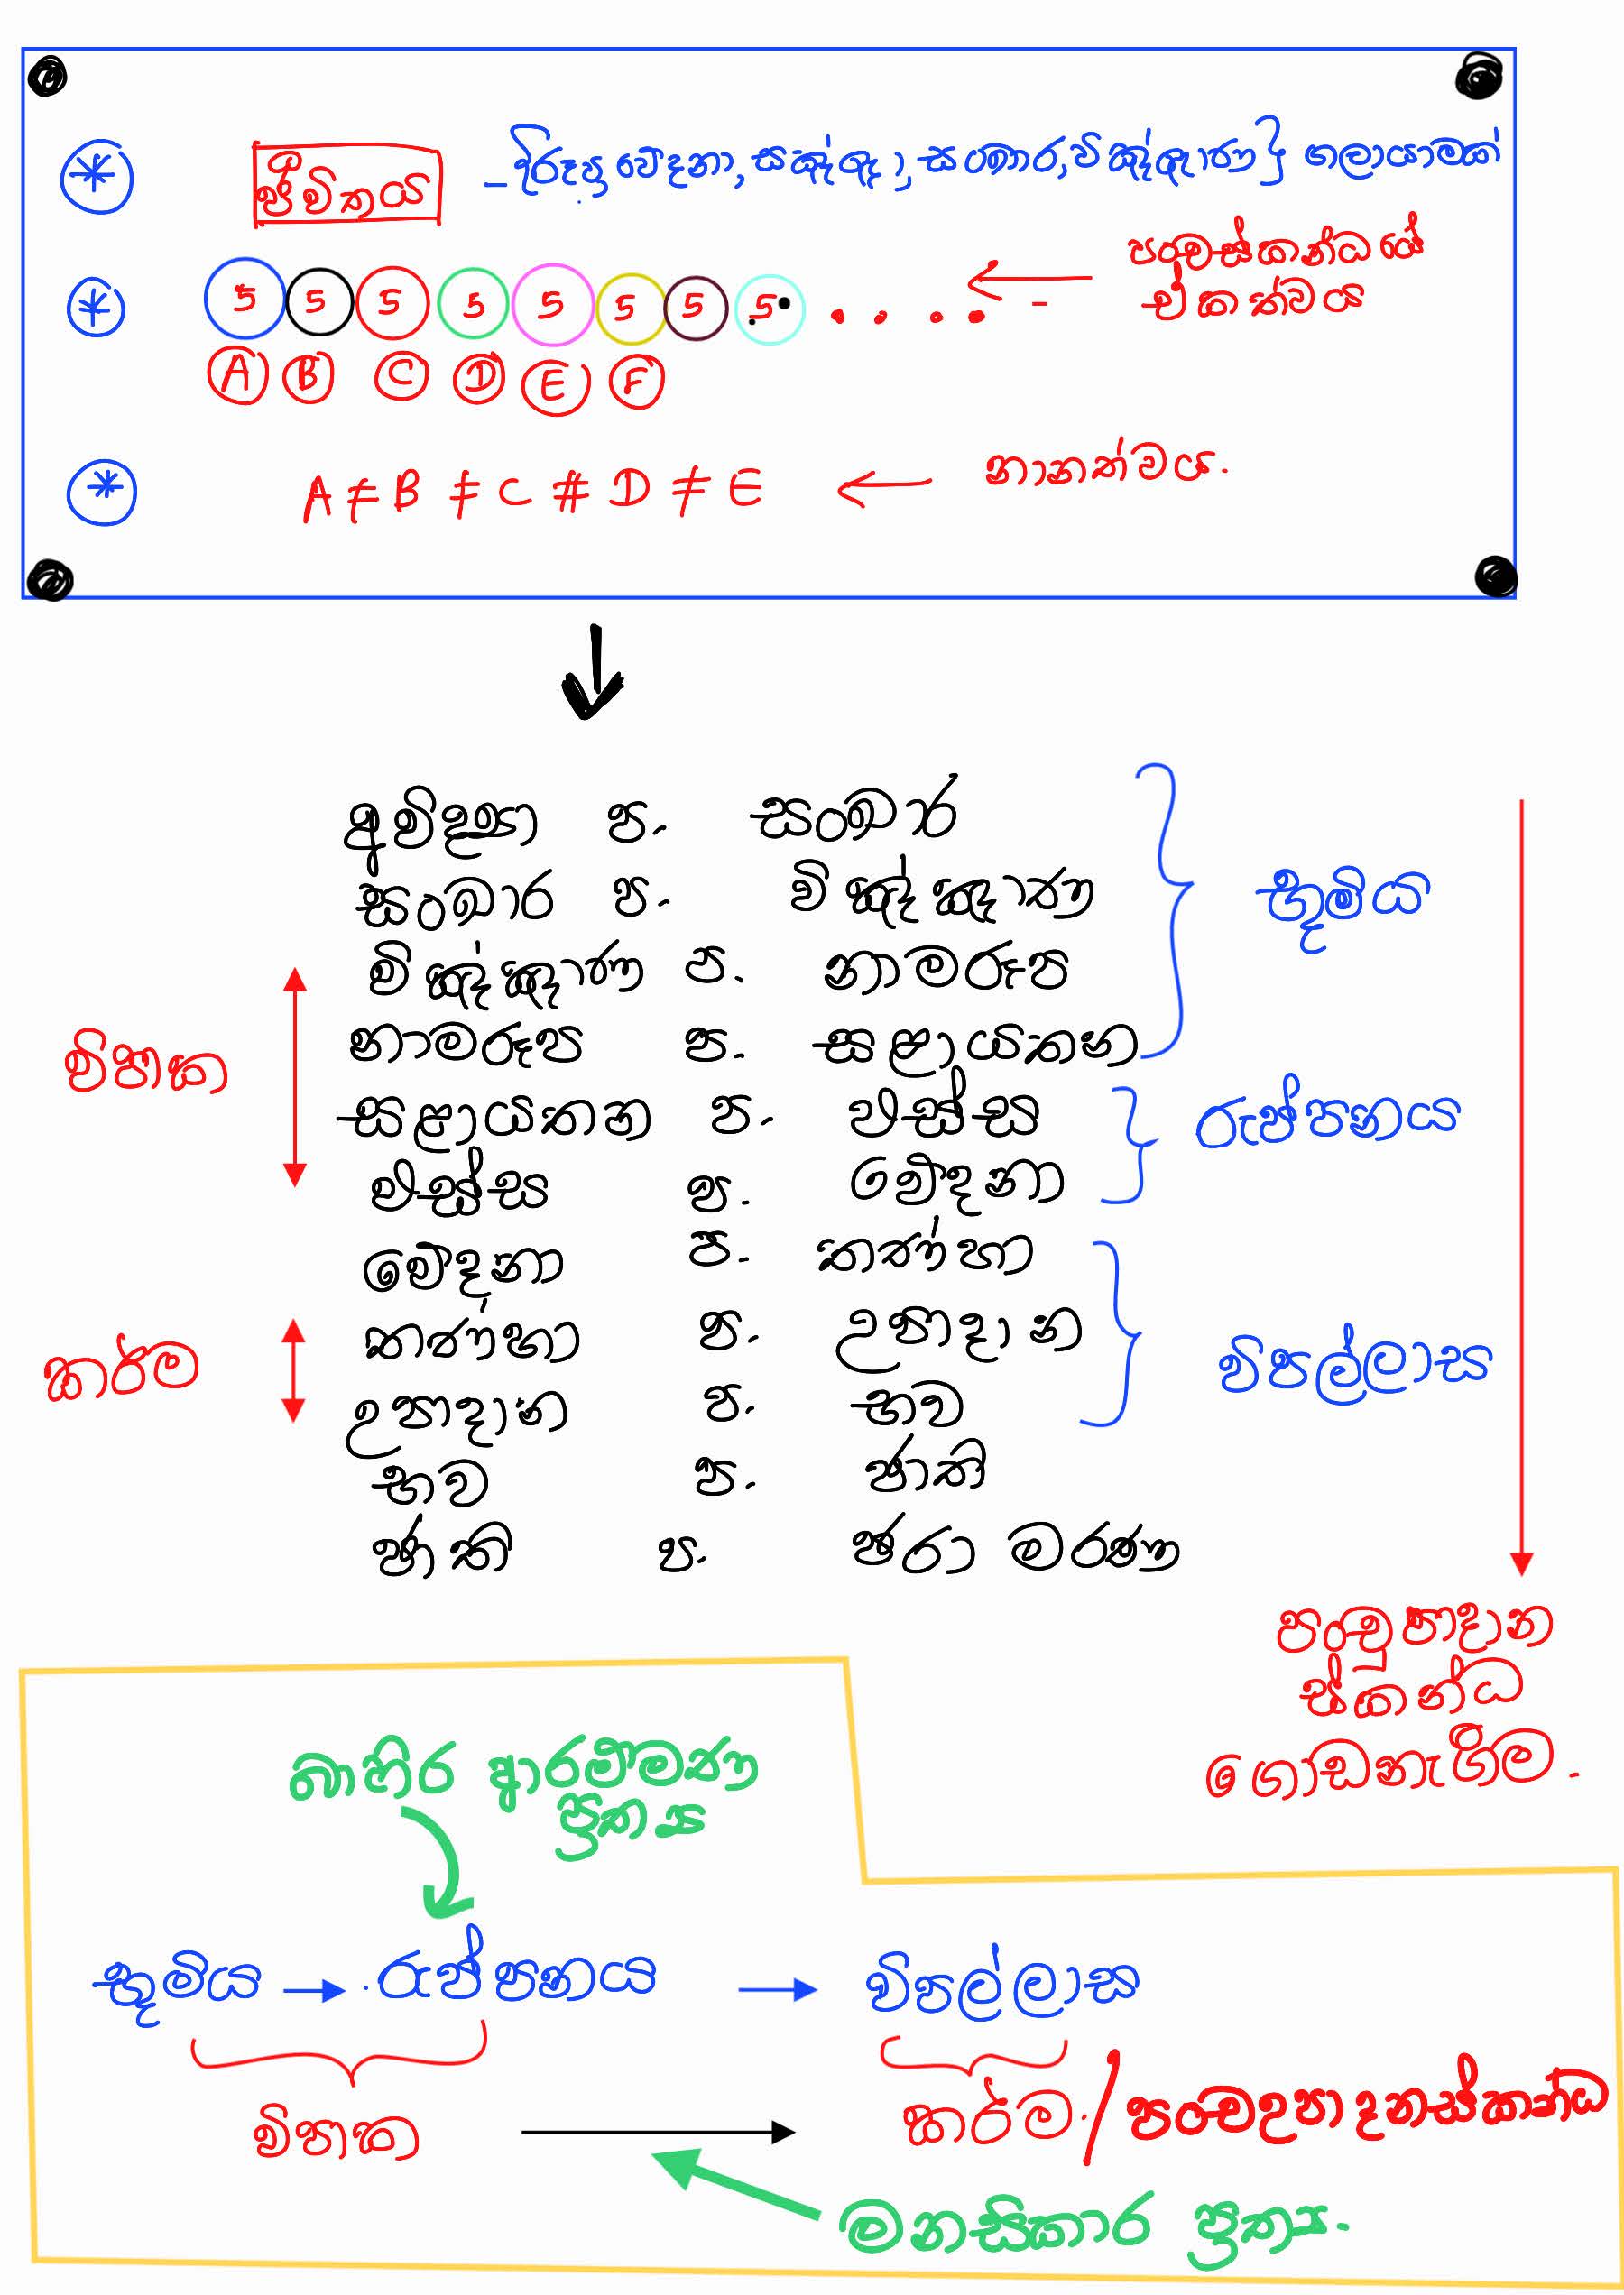 ජීවිතය - {රූප, වේදනා, සඤ්ඤා, සංඛාර, විඤ්ඤාණ} ගලායාමක්
5 5 5 5 5 5 5 5 . . . . ← පංචස්කන්ධයේ
ඒකත්වය
A B C D E F
A ≠ B ≠ C ≠ D ≠ E ← නානත්වය.
අවිද්‍යා ප. සංඛාර
සංඛාර ප. විඤ්ඤාණ
භූමිය
විඤ්ඤාණ ප. නාමරූප
නාමරූප ප. සළායතන
විපාක
සළායතන ප. ඵස්ස
රුප්පනය
ඵස්ස ප. වේදනා
වේදනා ප. තණ්හා
තණ්හා ප. උපාදාන
කර්ම
විපල්ලාස
උපාදාන ප. භව
භව ප. ජාති
ජාති ප. ජරා මරණ
පංචුපාදාන
ස්කන්ධ
ගොඩනැගීම.
බාහිර ආරම්මණ
ප්‍රත්‍ය
භූමිය → රුප්පනය → විපල්ලාස
විපාක → කර්ම / පංචඋපාදනස්කන්ධ
මනසිකාර ප්‍රත්‍ය.